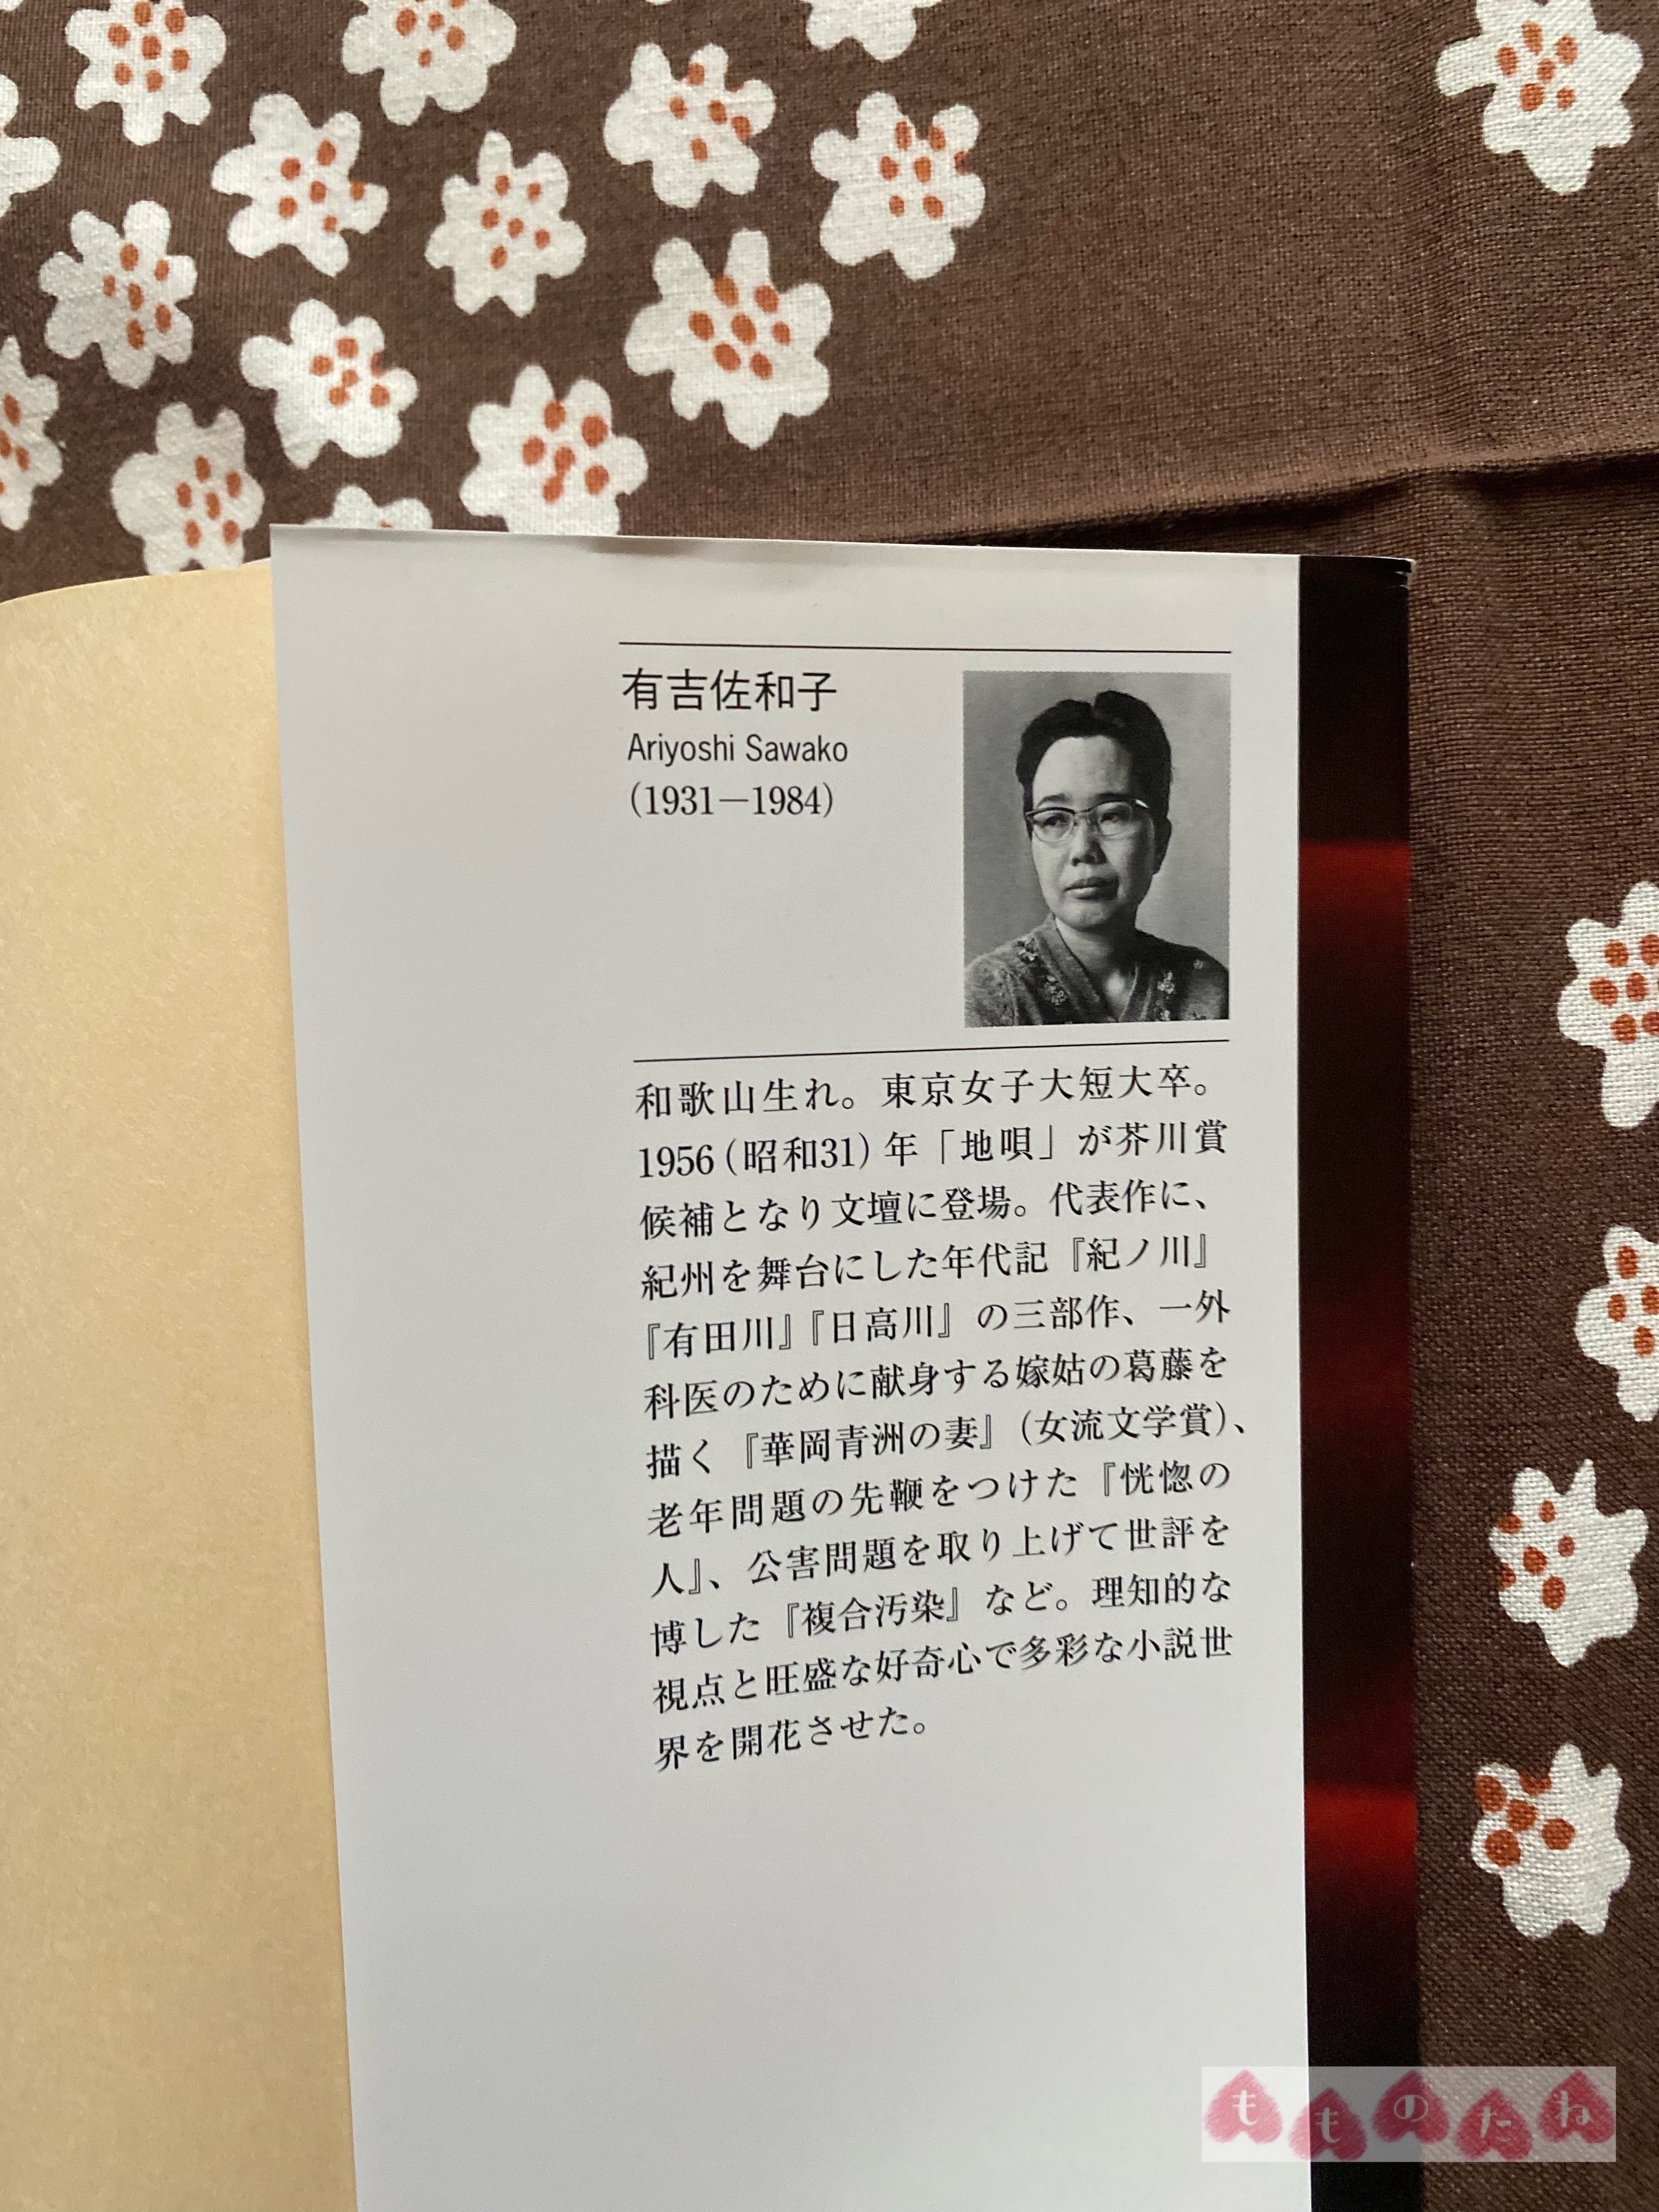 有吉佐和子
Ariyoshi Sawako
(1931―1984)
和歌山生れ。東京女子大短大卒。
1956(昭和31)年「地唄」が芥川賞
候補となり文壇に登場。代表作に、
紀州を舞台にした年代記『紀ノ川』
『有田川』『日高川』の三部作、一外
科医のために献身する嫁姑の葛藤を
描く『華岡青洲の妻』(女流文学賞)、
老年問題の先鞭をつけた『恍惚の
人』、公害問題を取り上げて世評を
博した『複合汚染』など。理知的な
視点と旺盛な好奇心で多彩な小説世
界を開花させた。
もものたね